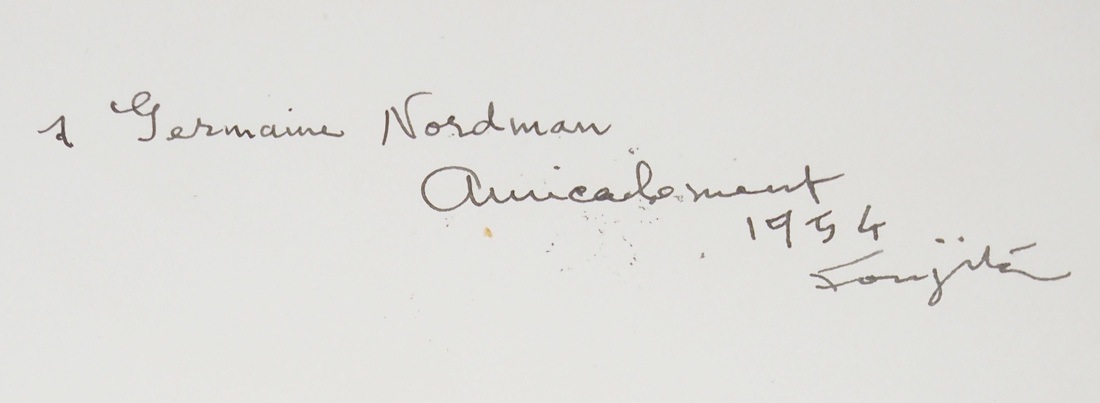 à Germaine Nordman
Amicalement
1954
Foujita